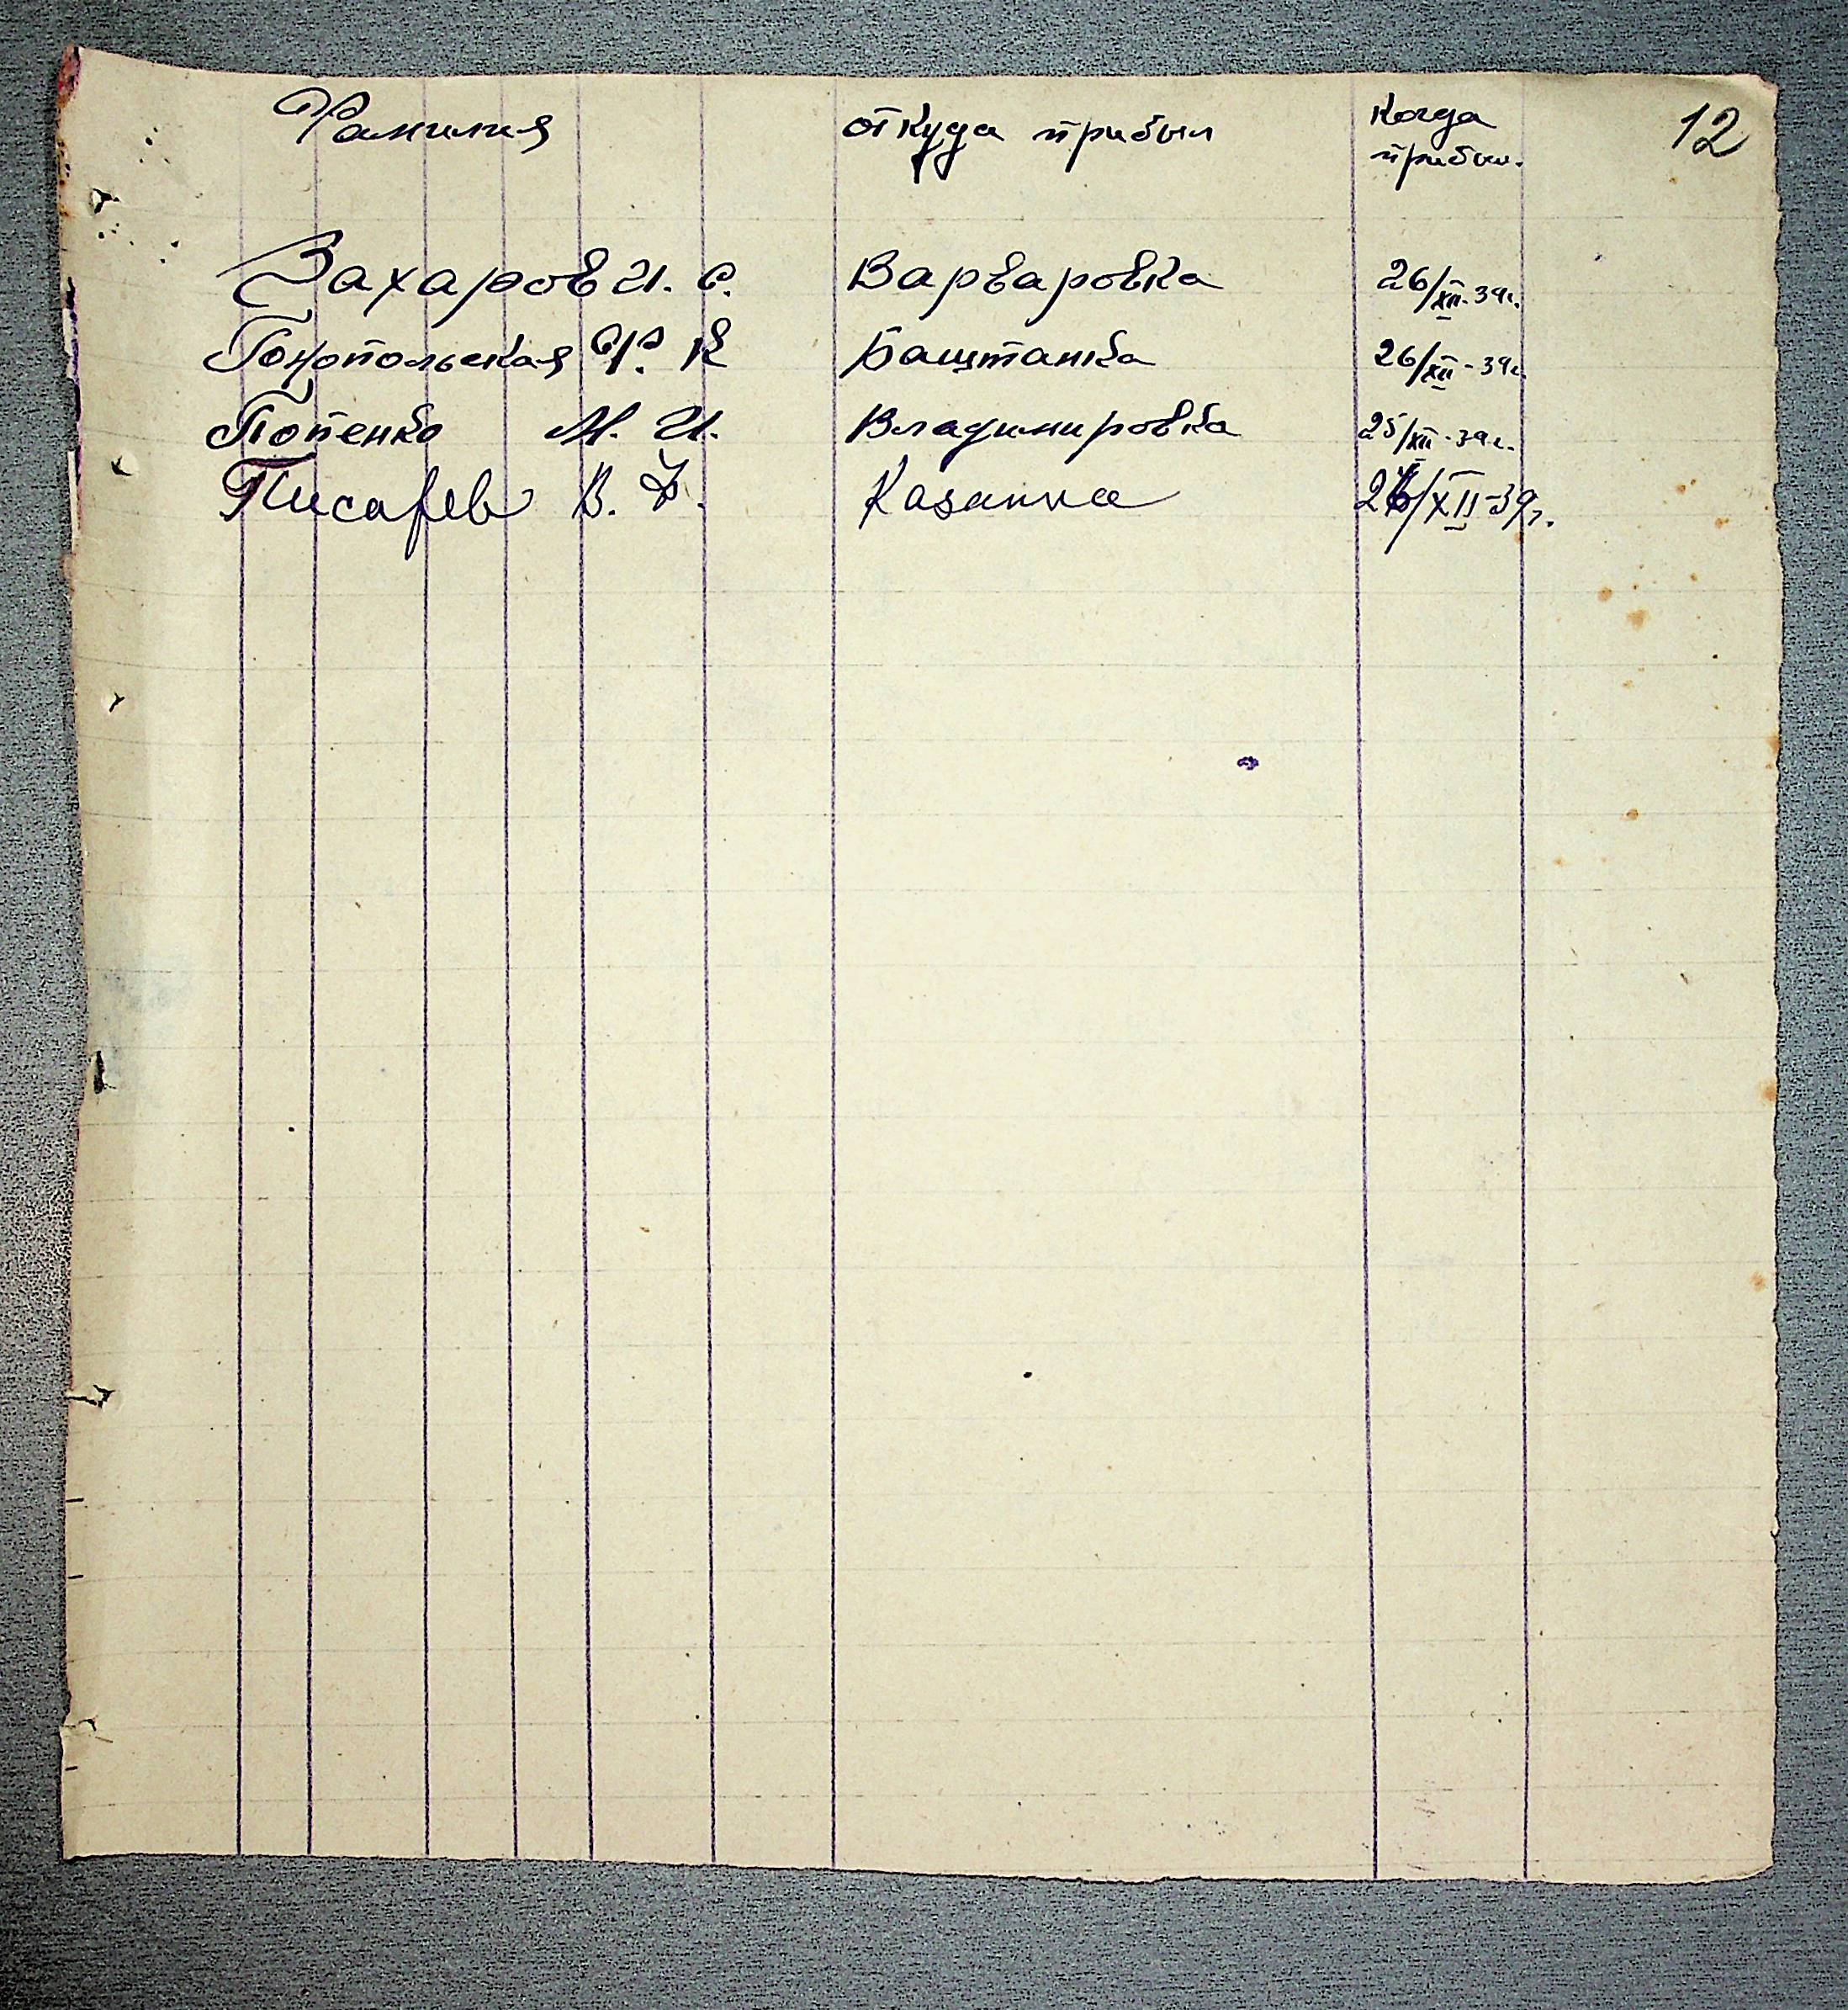 12
Фамилия откуда прибыл Когда прибыл.
Захаров И. С. Варваровка 26/XII-39г.
Гонопольская Ф. К Баштанка 26/XII-39г.
Попенко М. И. Владимировка 25/XII-39г.
Писарев В. Казанка 26/XII-39г.